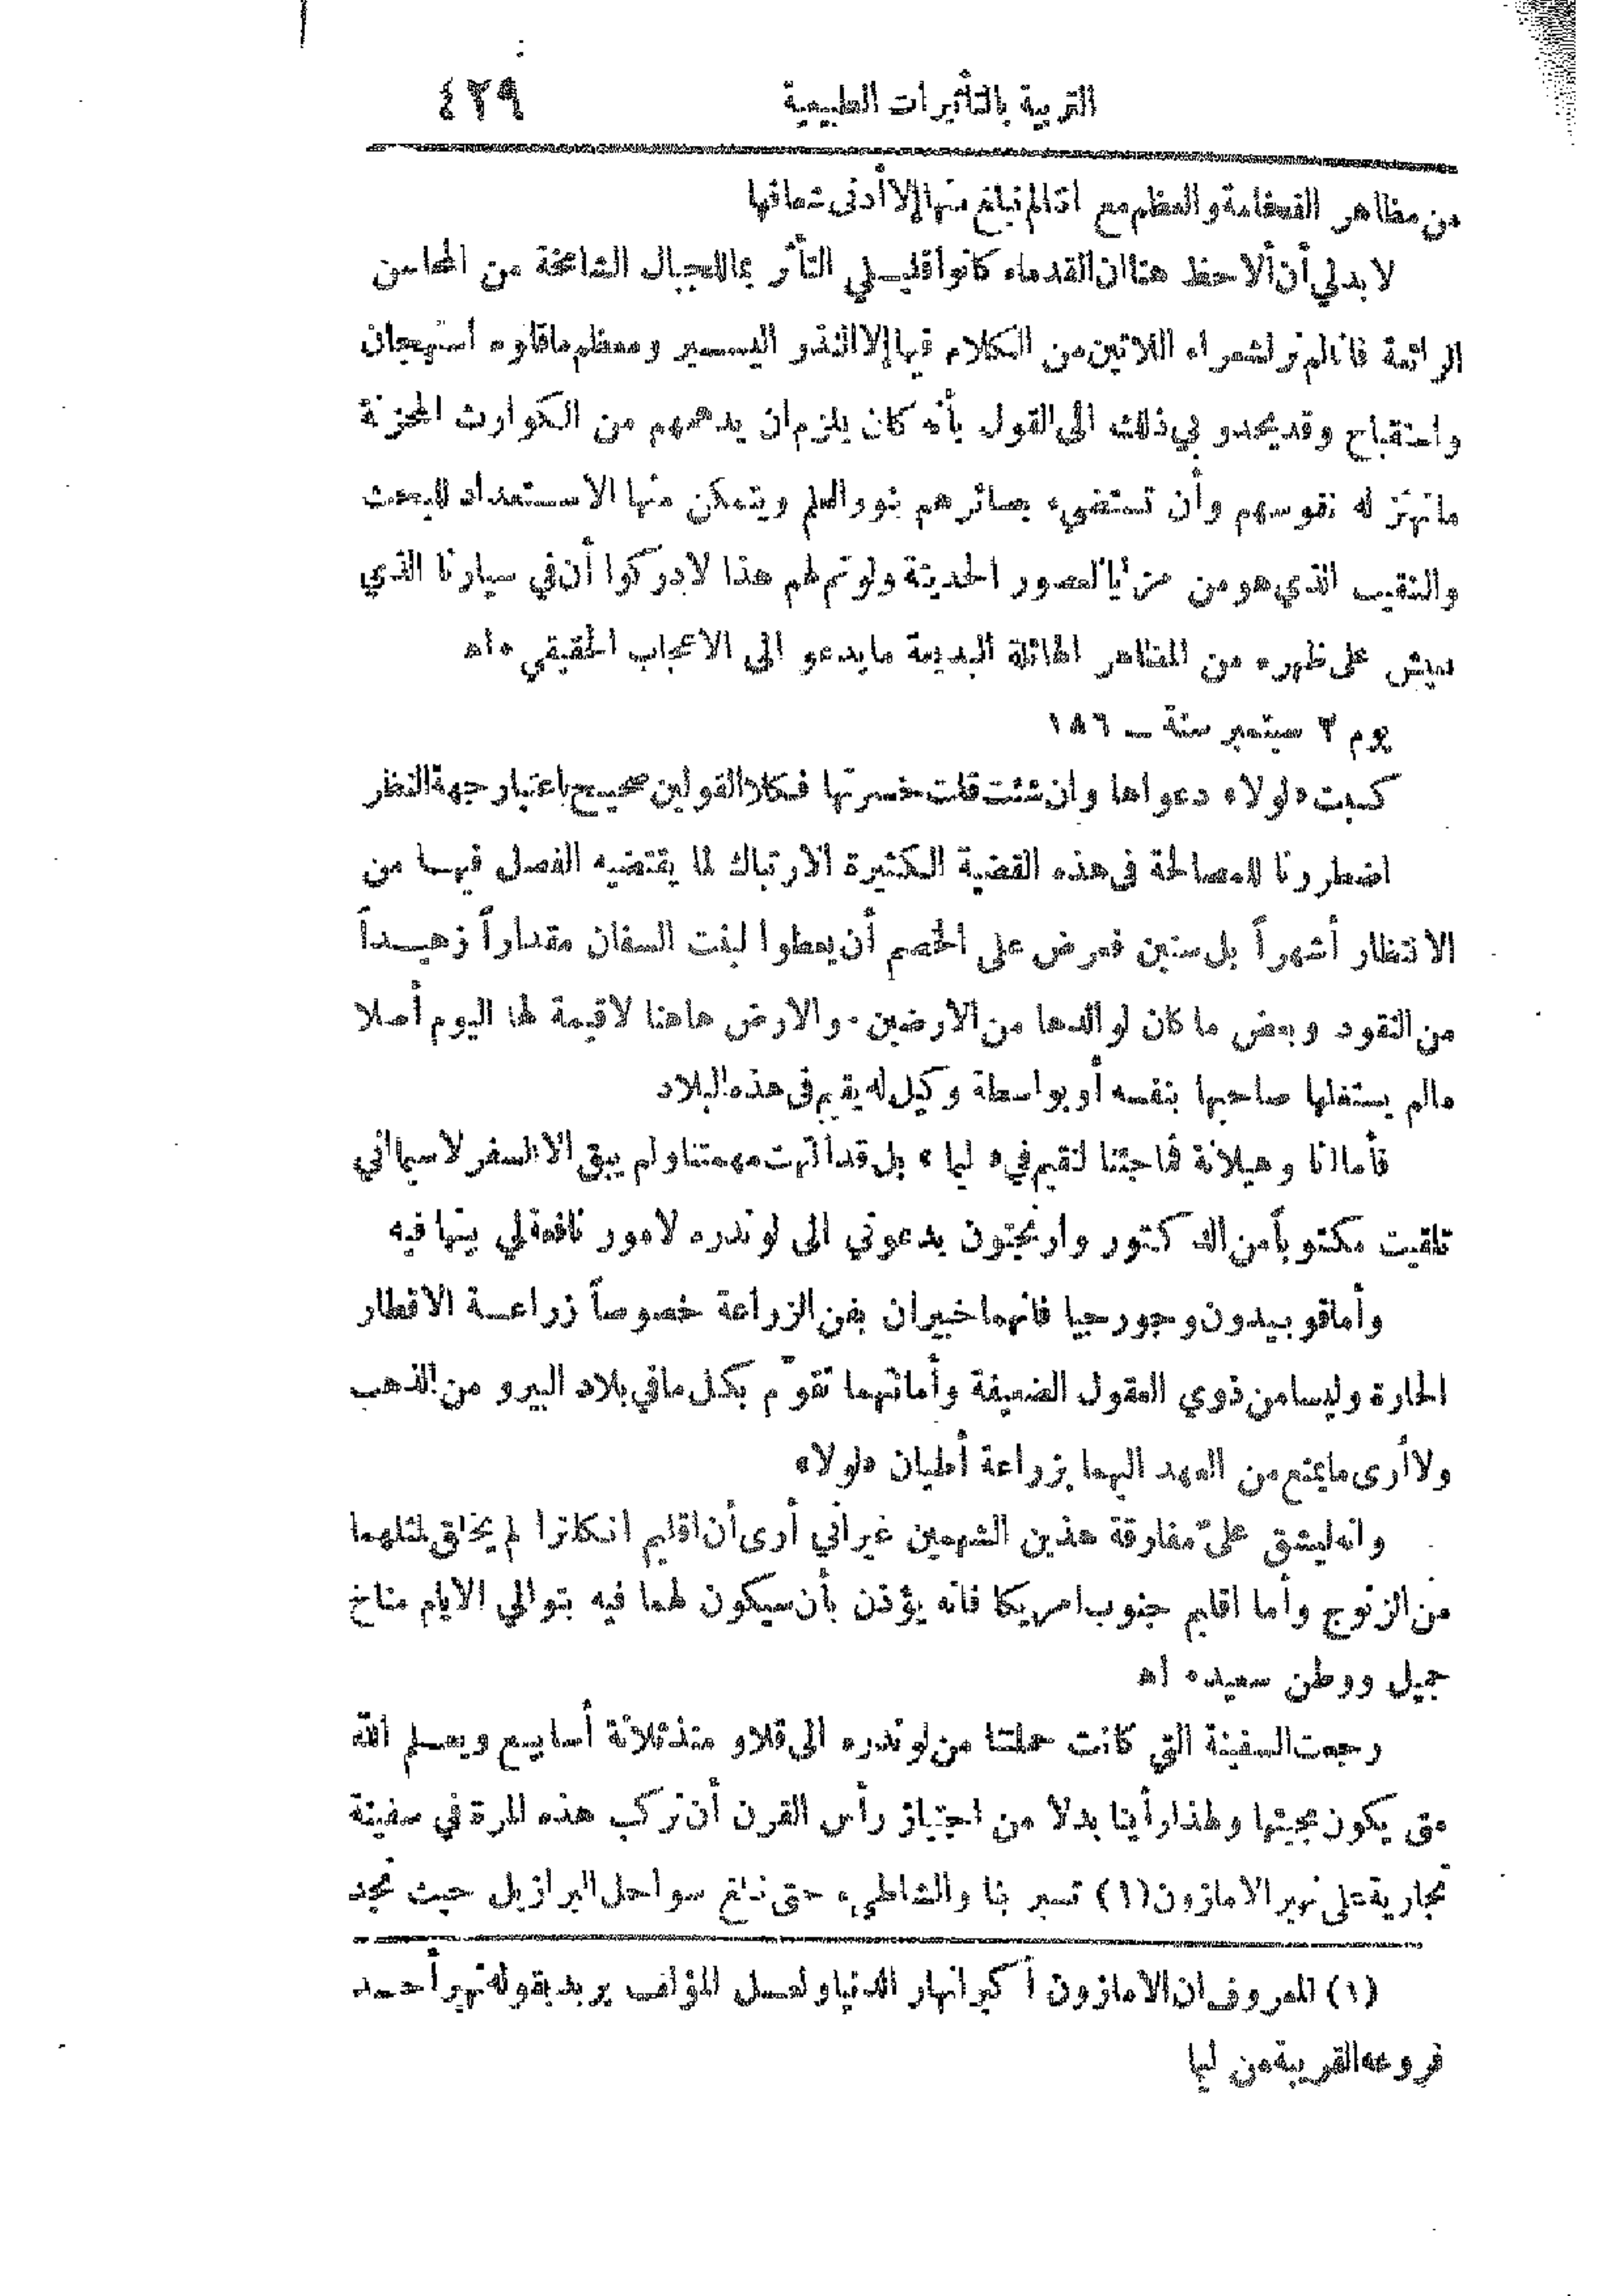 التربية بالتأثيرات الطبيعية ٤٢٩
من مظاهر الفخامة والعظم مع اننا لم نبلغ منها إلا أدنى شعافها
لا بد لي أن ألاحظ هنا ان القدماء كانوا قليلي التأثر بما للجبال الشامخة من المحاسن
الرائعة فاننا لم نر لشعراء اللاتين من الكلام فيها إلا النذر اليسير ومعظم ما قالوه استهجان
واستقباح وقد يحدو بي ذلك الى القول بأنه كان يلزم ان يدهمهم من الكوارث المحزنة
ما تهتز له نفوسهم وأن تستضيء بصائرهم بنور العلم ويتمكن منها الاستعداد للبحث
والتنقيب الذي هو من مزايا العصور الحديثة ولو تم لهم هذا لادركوا أن في سيارنا الذي
نعيش على ظهره من المناظر الهائلة البديعة ما يدعو الى الاعجاب الحقيقي ٠ اه
يوم ٢ سبتمبر سنة ــ ١٨٦
كسبت «لولا» دعواها وان شئت قلت خسرتها فكلا القولين صحيح باعتبار جهة النظر
اضطررنا للمصالحة في هذه القضية الكثيرة الارتباك لما يقتضيه الفصل فيها من
الانتظار أشهراً بل سنين فعرض على الخصم أن يعطوا لبنت السفان مقداراً زهيداً
من النقود وبعض ما كان لوالدها من الأرضين ٠ والارض هاهنا لا قيمة لها اليوم أصلا
مالم يستغلها صاحبها بنفسه أو بواسطة وكيل له يقيم في هذه البلاد
فأما انا وهيلانة فما جئنا لنقيم في « ليما » بل قد انتهت مهمتنا ولم يبق الا السفر لا سيما اني
تلقيت مكتوباً من الدكتور وارنجتون يدعوني الى لوندره لامور نافعة لي بينها فيه
وأما قوبيدون وجورجيا فانهما خبيران بفن الزراعة خصوصاً زراعة الاقطار
الحارة وليسا من ذوي العقول الضعيفة وأمانتهما تقوّم بكل ما في بلاد البيرو من الذهب
ولا أرى ما يمنع من العهد اليهما بزراعة أطيان «لولا»
وانه ليشق عليّ مفارقة هذين الشهمين غير أني أرى أن اقليم انكلترا لم يخلق لمثلهما
من الزنوج وأما اقليم جنوب امريكا فانه يؤذن بأن سيكون لهما فيه بتوالي الايام مناخ
جميل ووطن سعيد ٠ اه
رجعت السفينة التي كانت حملتنا من لوندره الى قلاو منذ ثلاثة أسابيع ويعلم الله
متى يكون مجيئها ولهذا رأينا بدلا من اجتياز رأس القرن أن نركب هذه المرة في سفينة
تجارية على نهير الامازون (١) تسير بنا والشاطيء حتى نبلغ سواحل البرازيل حيث نجد
(١) المعروف ان الامازون أكبر انهار الدنيا ولعل المؤلف يريد بقوله نهير أحد
فروعه القريبة من ليما